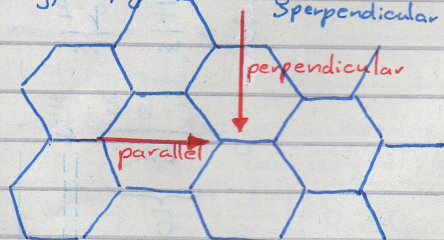 3perpendicular
perpendicular
parallel